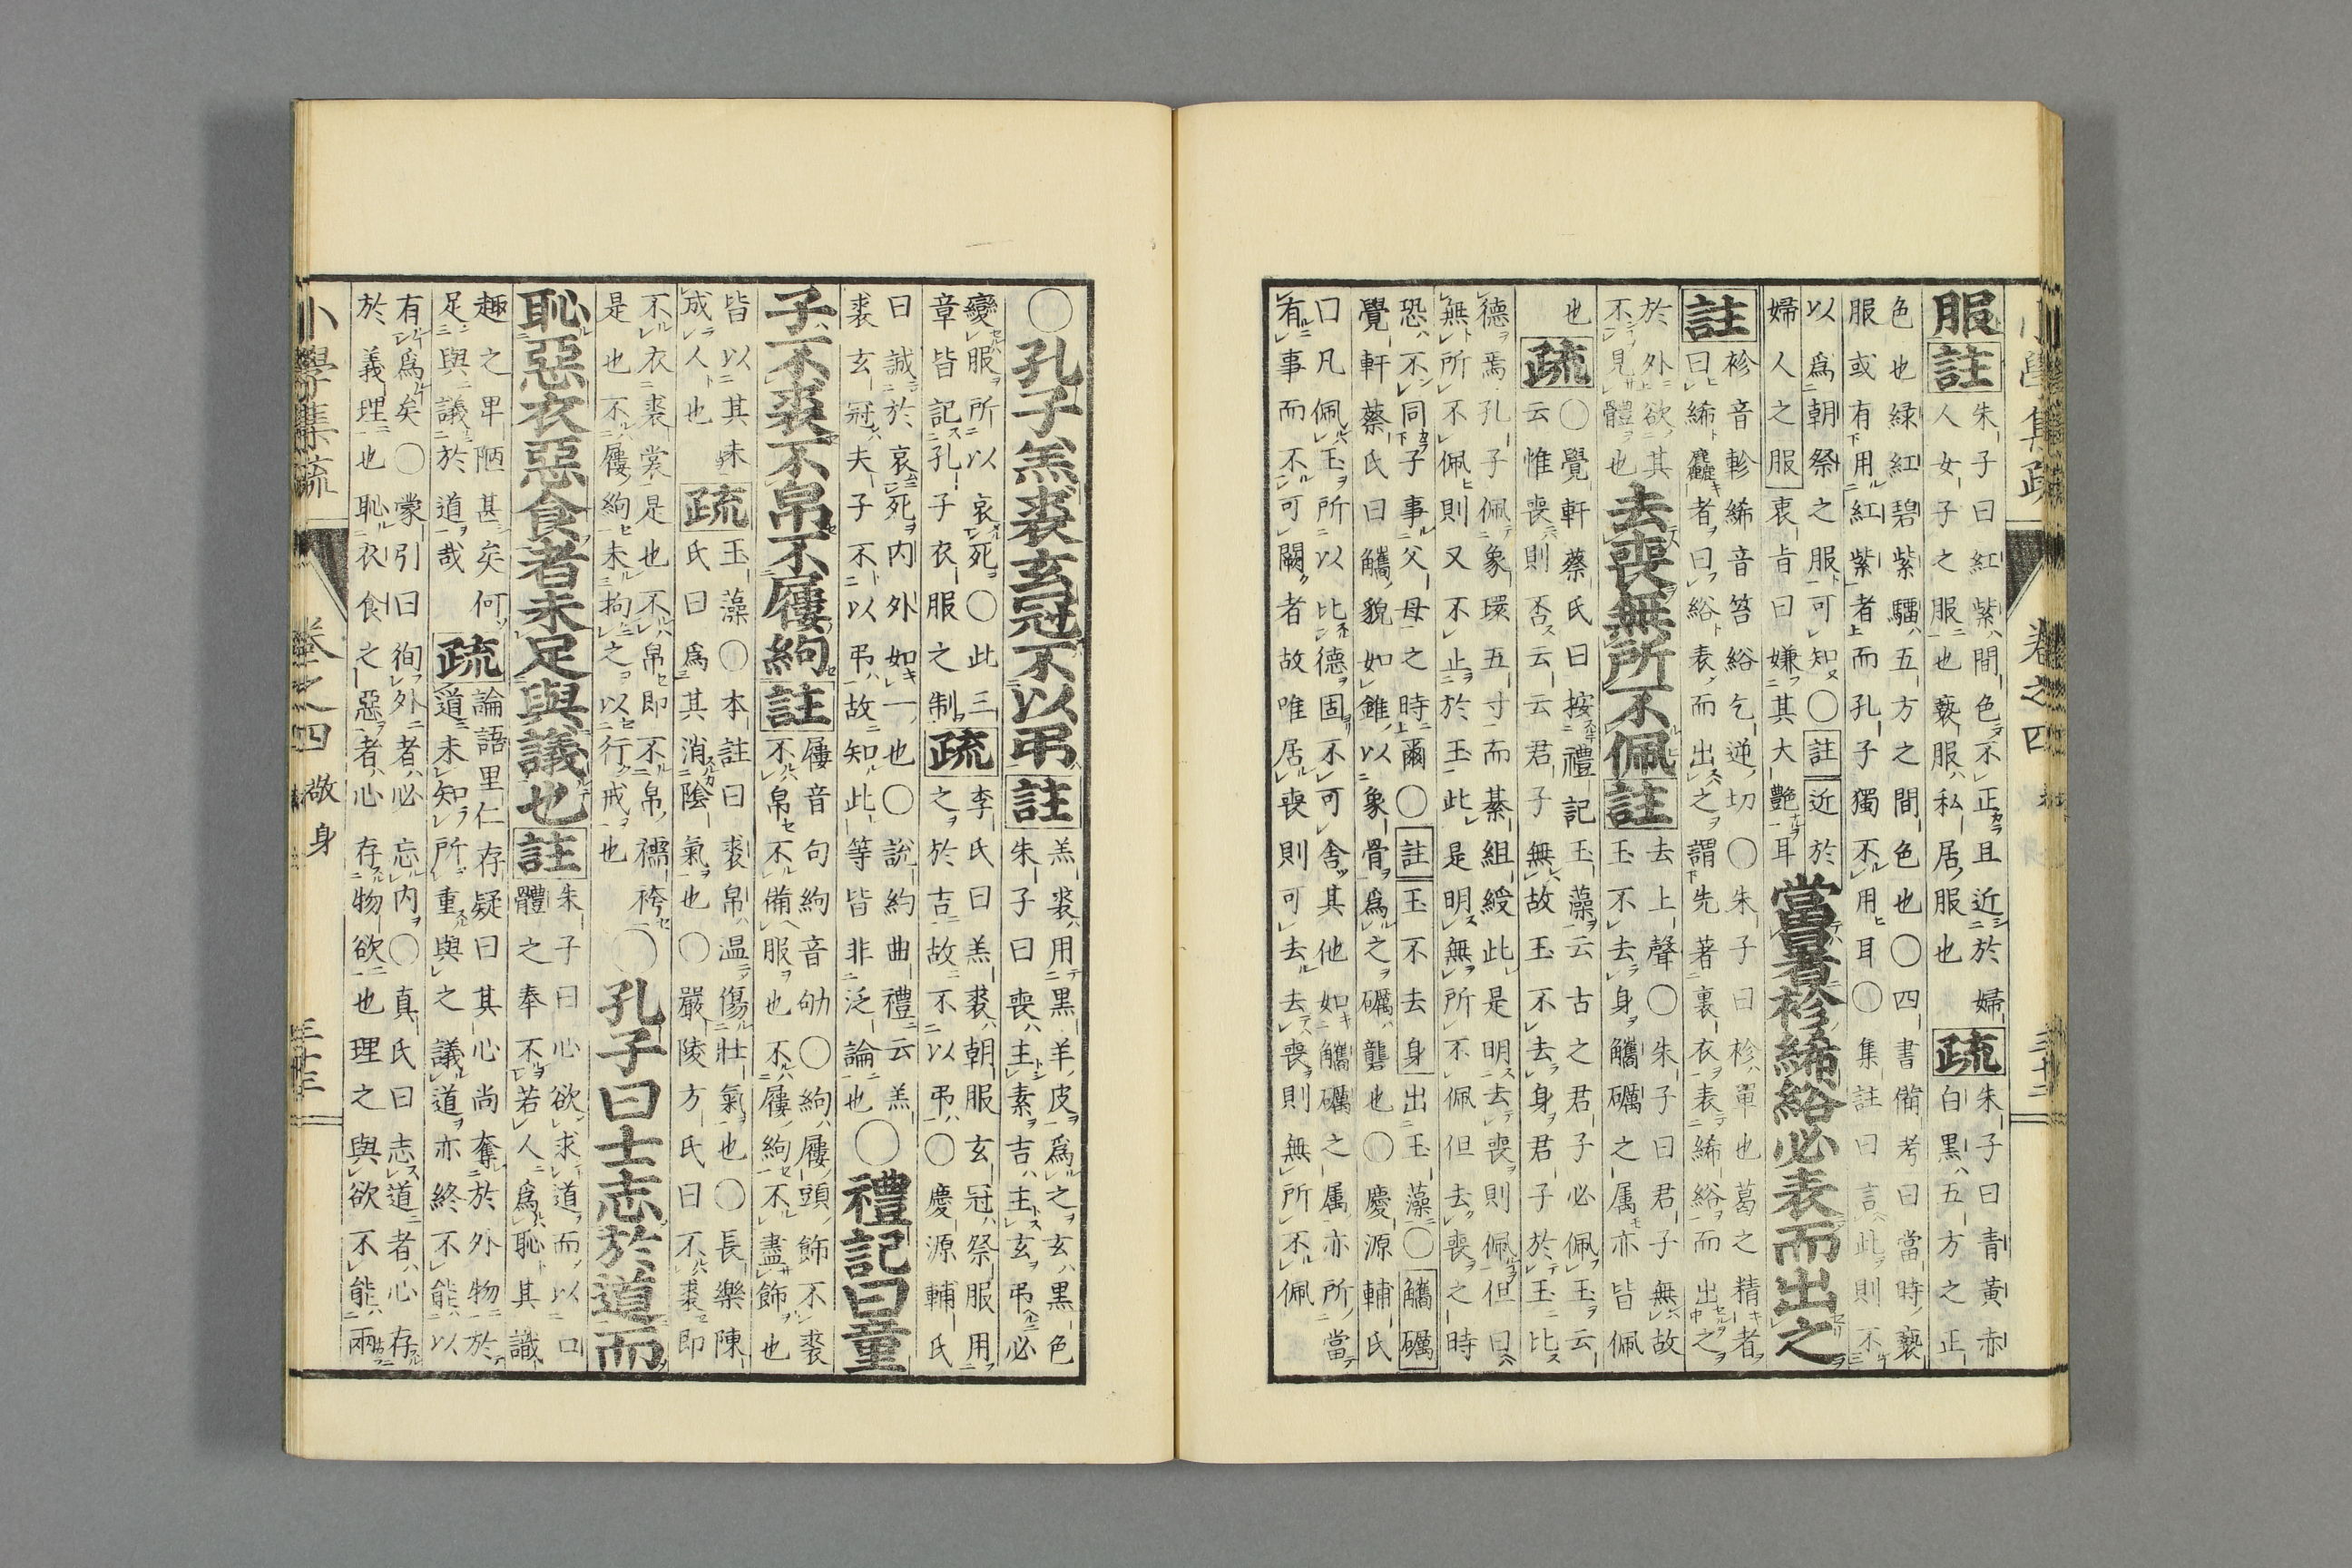 小學集疏 卷之四 三十二
服 註
朱子曰紅紫間色不正且近於婦
人女子之服也褻服私居服也
疏
朱子曰青黃赤
白黑五方之正
色也緑紅碧紫騮五方之間色也○四書備考曰當時褻
服或有用紅紫者而孔子獨不用耳○集註曰言此則不
以爲朝祭之服可知○註近於
婦人之服衷旨曰嫌其大艶耳
當暑袗絺綌必表而出之
註
袗音軫絺音笞綌乞逆切○朱子曰袗單也葛之精者
曰絺麤者曰綌表而出之謂先著裏衣表絺綌而出之
於外欲其
不見體也
去喪無所不佩 註
去上聲○朱子曰君子無故
玉不去身觿礪之属亦皆佩
也
疏
○覺軒蔡氏曰按禮記玉藻云古之君子必佩玉云
云惟喪則否云云君子無故玉不去身君子於玉比
德焉孔子佩象環五寸而綦組綬此是明去喪則佩但曰
無所不佩則又不止於玉此是明無所不佩但去喪之時
恐不同子事父母之時爾○註玉不去身出玉藻○觿礪
覺軒蔡氏曰觿貌如錐以象骨爲之礪礱也○慶源輔氏
曰凡佩玉所以比德固不可舍其他如觿礪之属亦所當
有事而不可闕者故唯居喪則可去去喪則無所不佩
○孔子羔裘玄冠不以弔 註
羔裘用黑羊皮爲之玄黑色
朱子曰喪主素吉主玄弔必
變服所以哀死○此三
章皆記孔子衣服之制
疏
李氏曰羔裘朝服玄冠祭服用
之於吉故不以弔○慶源輔氏
曰誠於哀死内外如一也○說約曲禮云羔
裘玄冠夫子不以弔故知此等皆非泛論也
○禮記曰童
子不裘不帛不屨絇 註
屨音句絇音劬○絇屨頭飾不裘
不帛不備服也不屨絇不盡飾也
皆以其未
成人也
疏
玉藻○本註曰裘帛温傷壯氣也○長樂陳
氏曰爲其消陰氣也○嚴陵方氏曰不裘即
不衣裘裳是也不帛即不帛襦袴
是也不屨絇未拘之以行戒也
○孔子曰士志於道而
恥惡衣惡食者未足與議也 註
朱子曰心欲求道而以口
體之奉不若人爲恥其識
趣之卑陋甚矣何
足與議於道哉
疏
論語里仁存疑曰其心尚奪於外物於
道未知所重與之議道亦終不能以
有爲矣○蒙引曰徇外者必忘内○真氏曰志道者心存
於義理也恥衣食之惡者心存物欲也理之與欲不能兩
小學集疏 卷之四 敬身 三十三